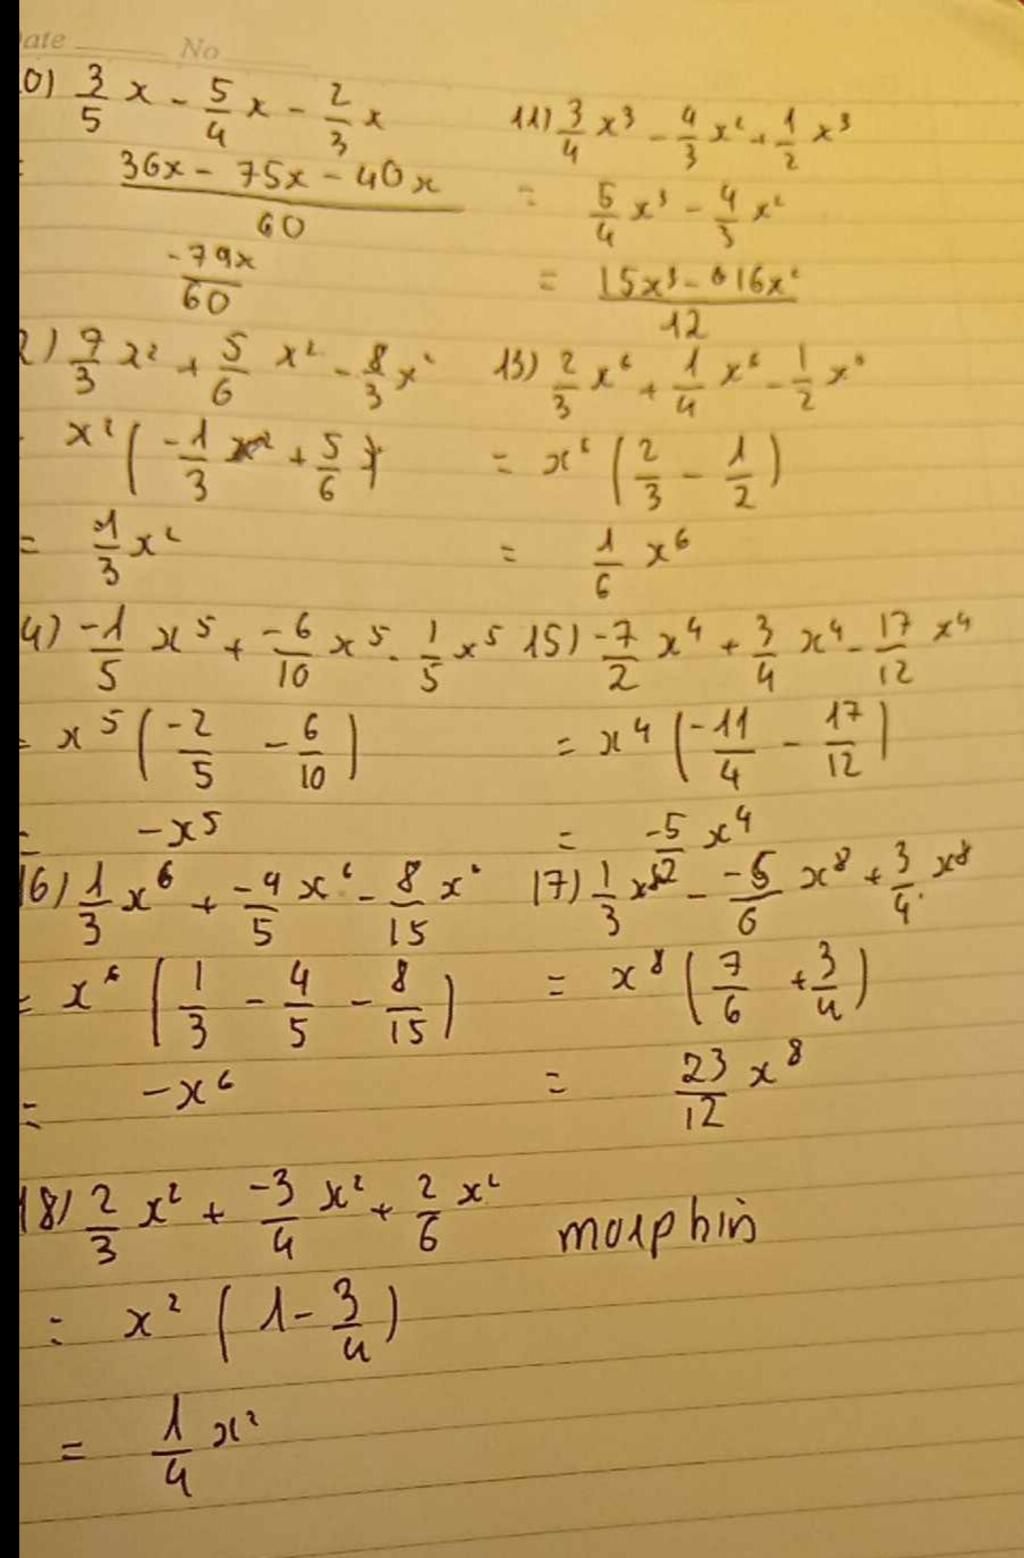 Date No
0) 3/5 x - 5/4 x - 2/3 x
= (36x - 75x - 40x)/60
-79x/60
11) 3/4 x³ - 4/3 x² + 1/2 x³
= 5/4 x³ - 4/3 x²
= (15x³ - 16x²)/12
2) 7/3 x² + 5/6 x² - 8/3 x²
= x² (-1/3 + 5/6)
= 1/3 x²
13) 2/3 x⁶ + 1/4 x⁶ - 1/2 x⁶
= x⁶ (2/3 - 1/2)
= 1/6 x⁶
4) -1/5 x⁵ + -6/10 x⁵ - 1/5 x⁵
= x⁵ (-2/5 - 6/10)
= -x⁵
15) -7/2 x⁴ + 3/4 x⁴ - 17/12 x⁴
= x⁴ (-11/4 - 17/12)
= -5/2 x⁴
16) 1/3 x⁶ + -4/5 x⁶ - 8/15 x⁶
= x⁶ (1/3 - 4/5 - 8/15)
= -x⁶
17) 1/3 x⁸ - -5/6 x⁸ + 3/4 x⁸
= x⁸ (7/6 + 3/4)
= 23/12 x⁸
18) 2/3 x² + -3/4 x² + 2/6 x²
= x² (1 - 3/4)
= 1/4 x²
morphin